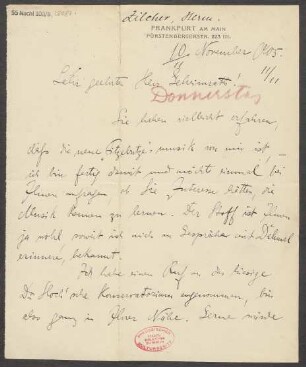 Zilcher, Herm.
FRANKFURT AM MAIN
FÜRSTENBERGERSTR. 221 III.
10 November 1905.
11/11
Sehr geehrter Herr
Donnerstag
Sie haben vielleicht erfahren,
dass die neue "Fitzebutze" musik von mir ist,
ich bin fertig damit und möchte einmal bei
Ihnen anfragen ob Sie Interesse hätten, die
Musik kennen zu lernen. Der Stoff ist Ihnen
ja wohl soweit ich mich an Gespräche mit Dehmel
erinnere, bekannt.
Ich habe einen Ruf an das hiesige
Dr. Hoch'sche Konservatorium angenommen, bin
also ganz in Ihrer Nähe. Gerne würde